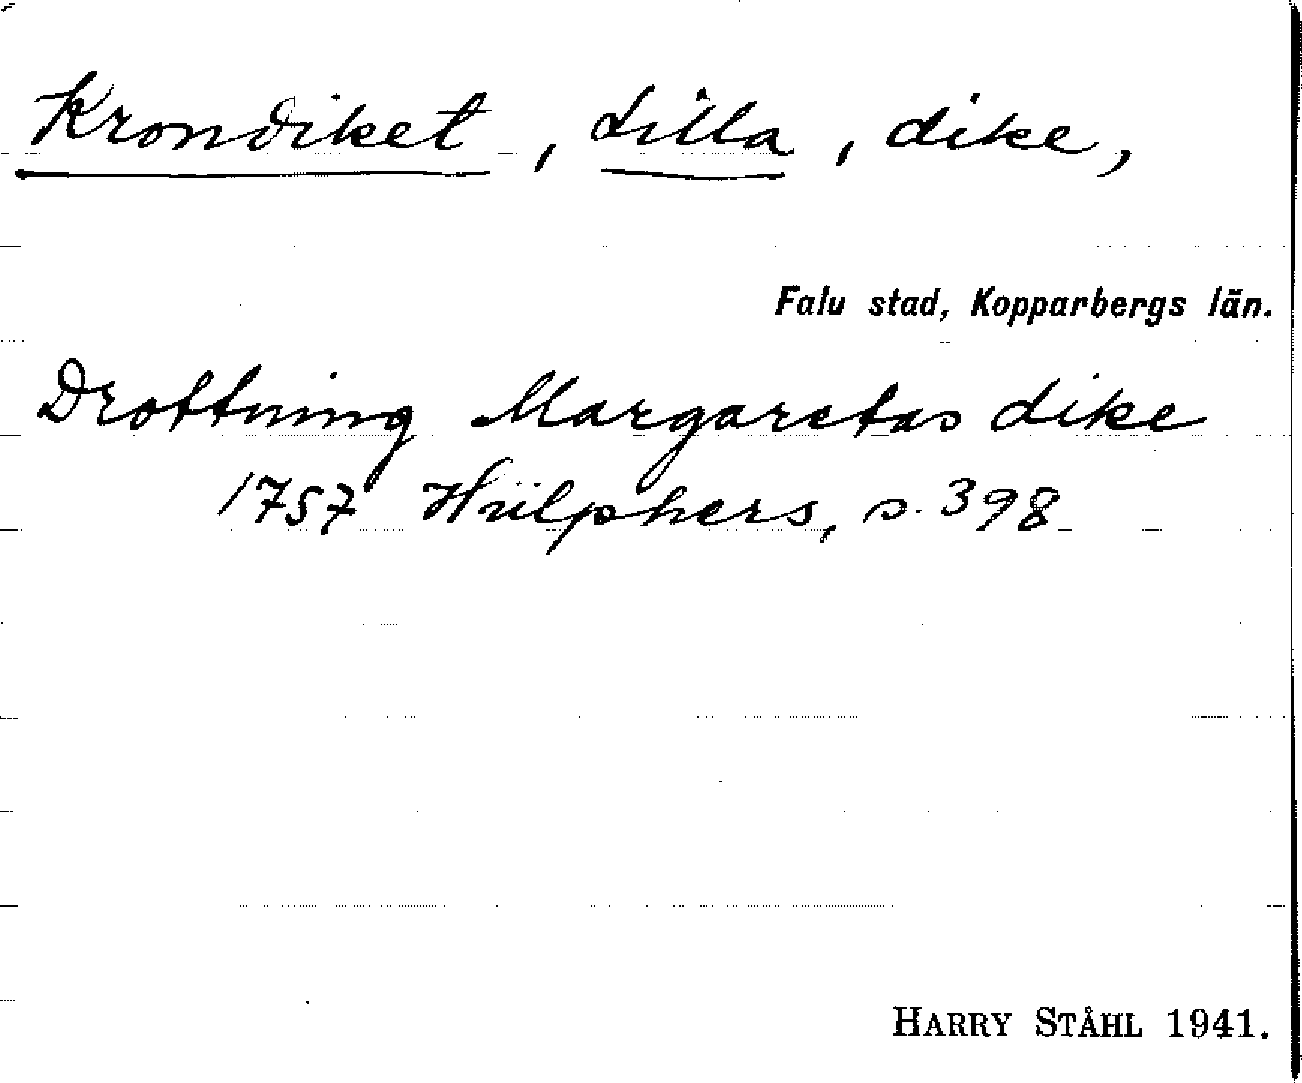 Krondiket, Lilla, dike,
Falu stad, Kopparbergs län.
Drottning Margaretas dike
1757 Hülphers, s. 398
HARRY STÅHL 1941.